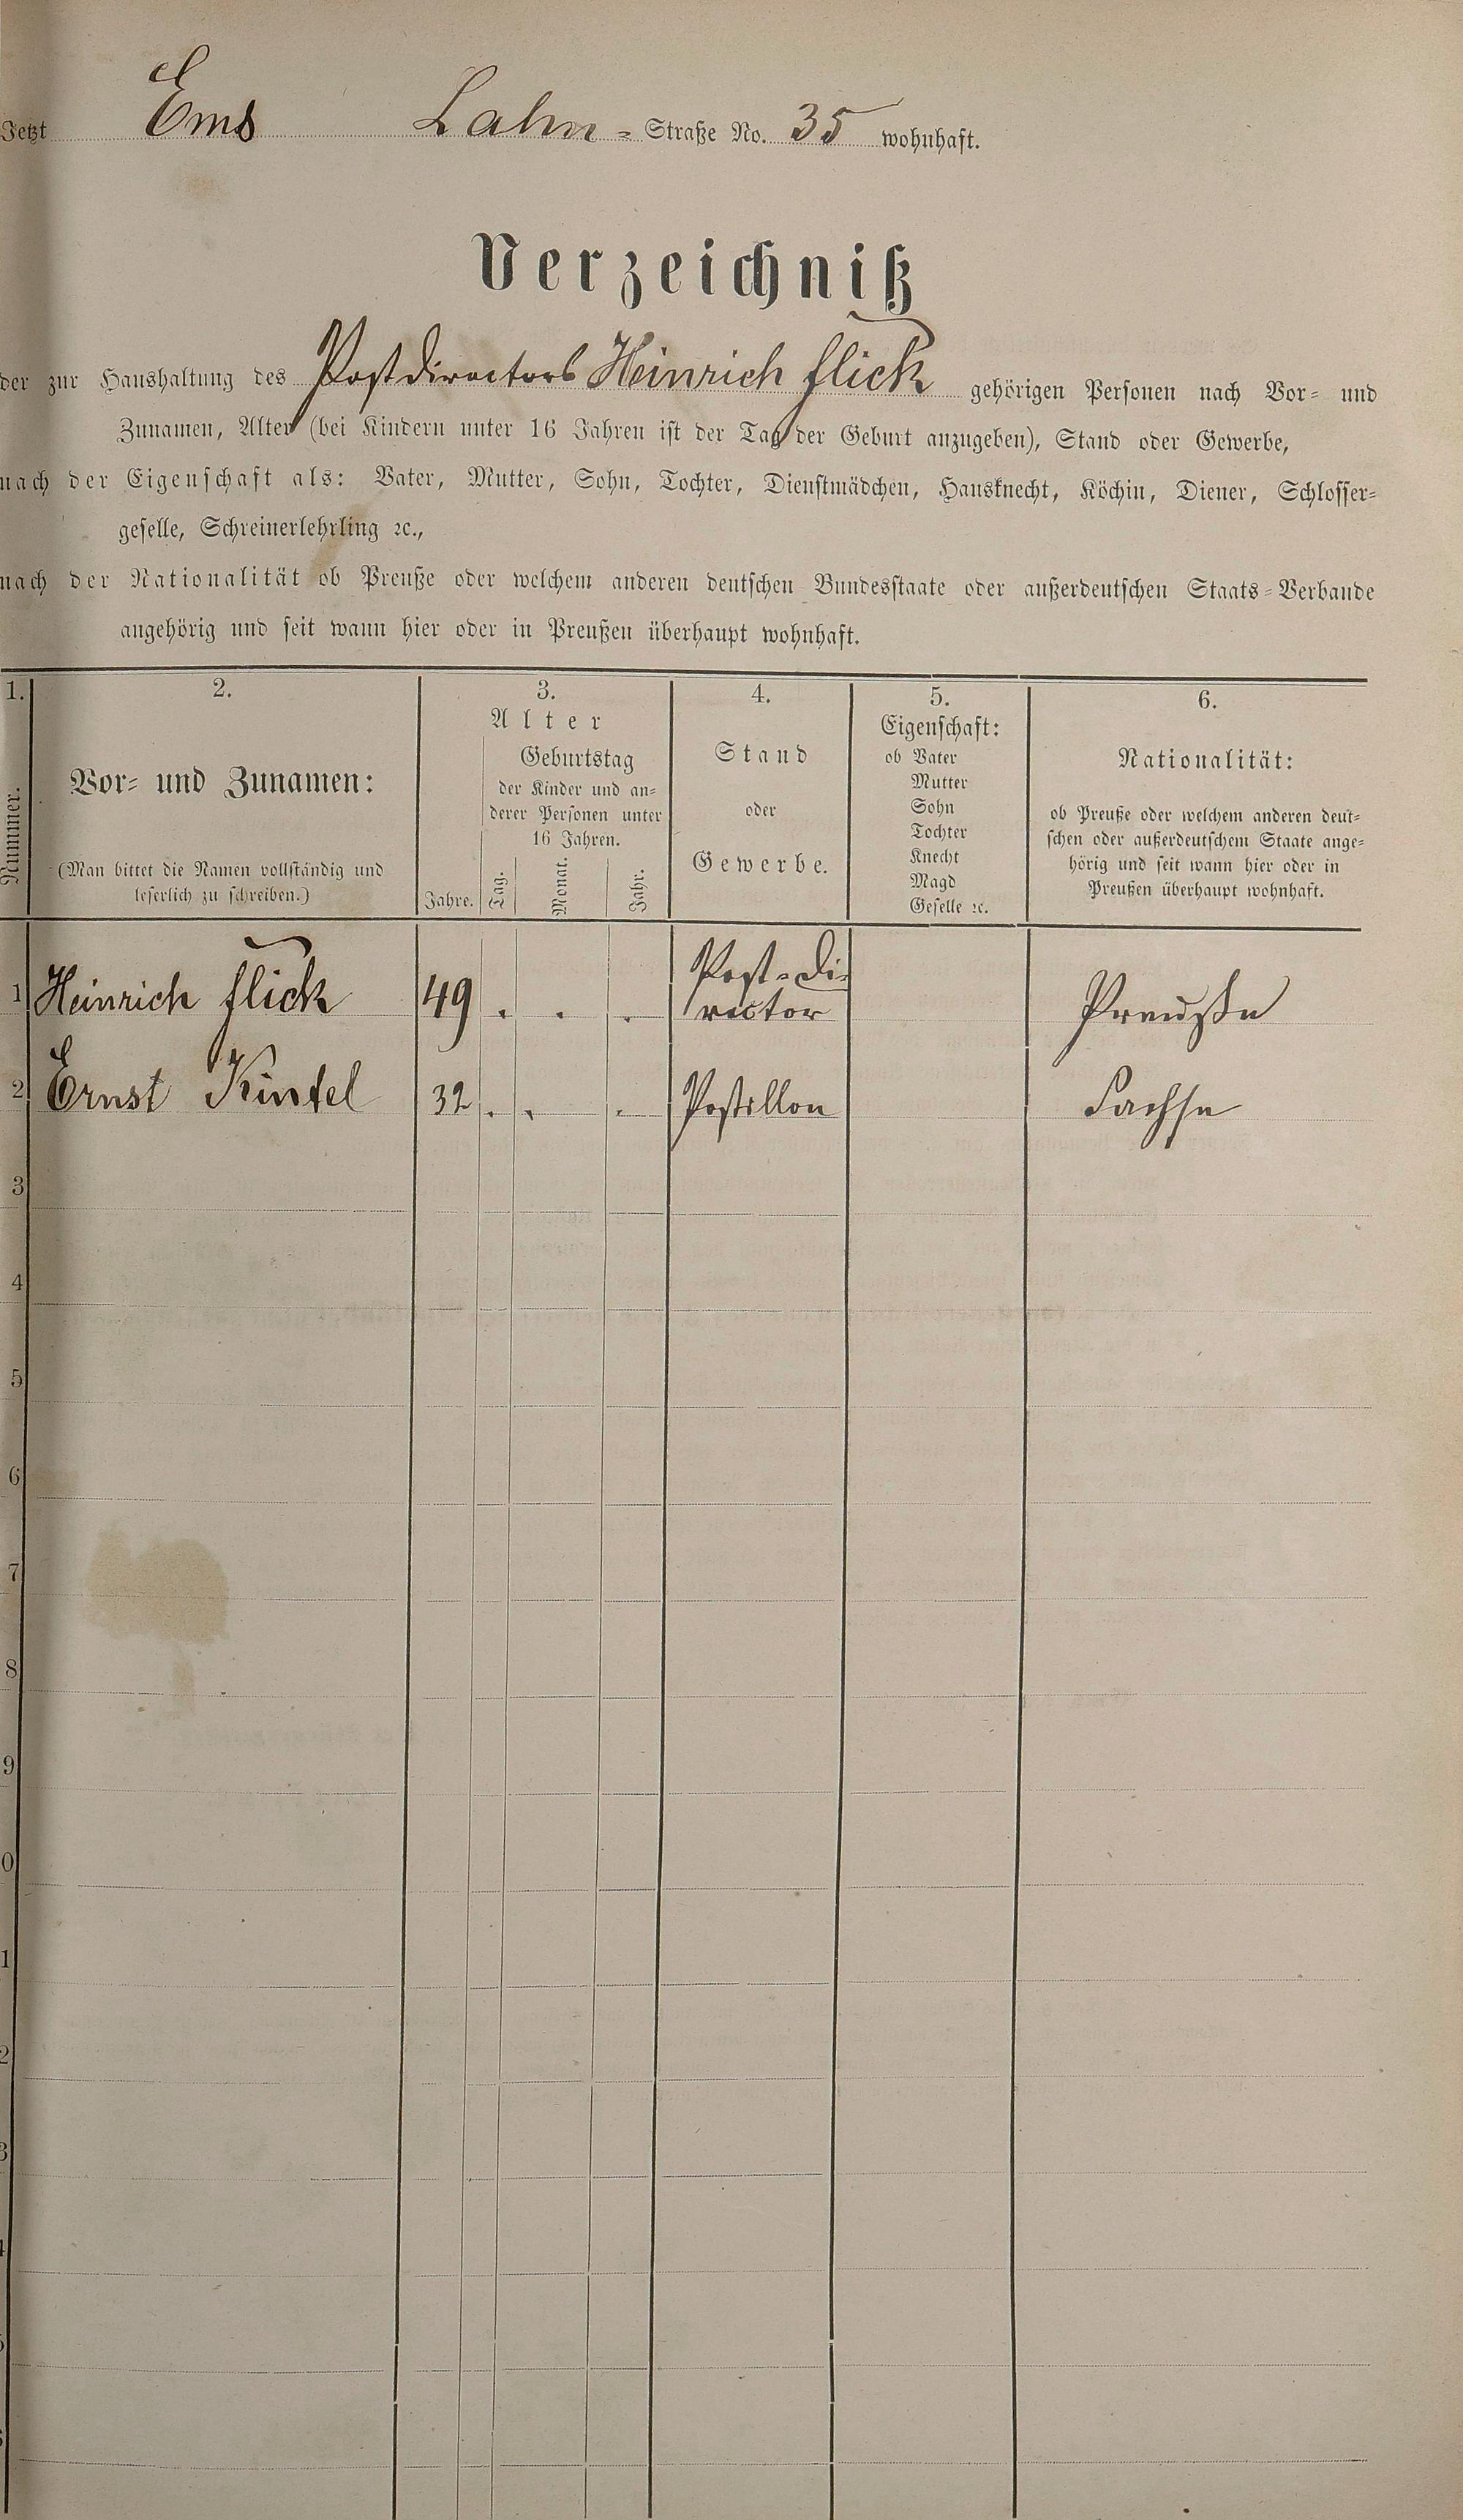 Jetzt Ems Lahn-Straße No. 35 wohnhaft.
Verzeichniß
der zur Haushaltung des Postdirectors Heinrich Flick gehörigen Personen nach Vor- und
Zunamen, Alter (bei Kindern unter 16 Jahren ist der Tag der Geburt anzugeben), Stand oder Gewerbe,
nach der Eigenschaft als: Vater, Mutter, Sohn, Tochter, Dienstmädchen, Hausknecht, Köchin, Diener, Schlosser-
geselle, Schreinerlehrling ꝛc.,
nach der Nationalität ob Preuße oder welchem anderen deutschen Bundesstaate oder außerdeutschen Staats-Verbande
angehörig und seit wann hier oder in Preußen überhaupt wohnhaft.
1.
Nummer.
2.
Vor- und Zunamen:
(Man bittet die Namen vollständig und
leserlich zu schreiben.)
3.
Alter
Jahre.
Geburtstag
der Kinder und an-
derer Personen unter
16 Jahren.
Tag. Monat. Jahr.
4.
Stand
oder
Gewerbe.
5.
Eigenschaft:
ob Vater
Mutter
Sohn
Tochter
Knecht
Magd
Geselle ꝛc.
6.
Nationalität:
ob Preuße oder welchem anderen deut-
schen oder außerdeutschem Staate ange-
hörig und seit wann hier oder in
Preußen überhaupt wohnhaft.
1 Heinrich Flick 49 . . . Post-Di-
rector Preuße
2 Ernst Kintel 32 . . . Postillon Sachse
3
4
5
6
7
8
9
0
1
2
3
4